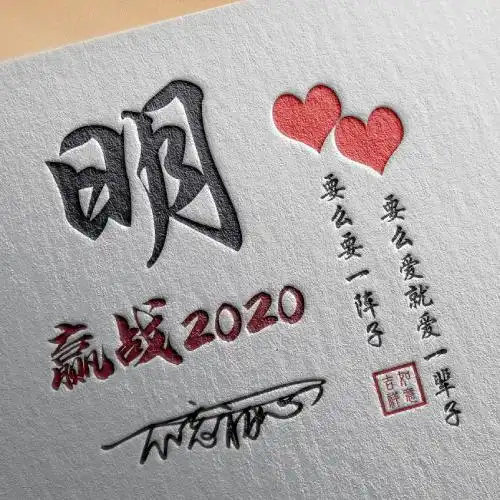 明
赢战2020
要么爱就爱一辈子
要么要一阵子
如意
吉祥